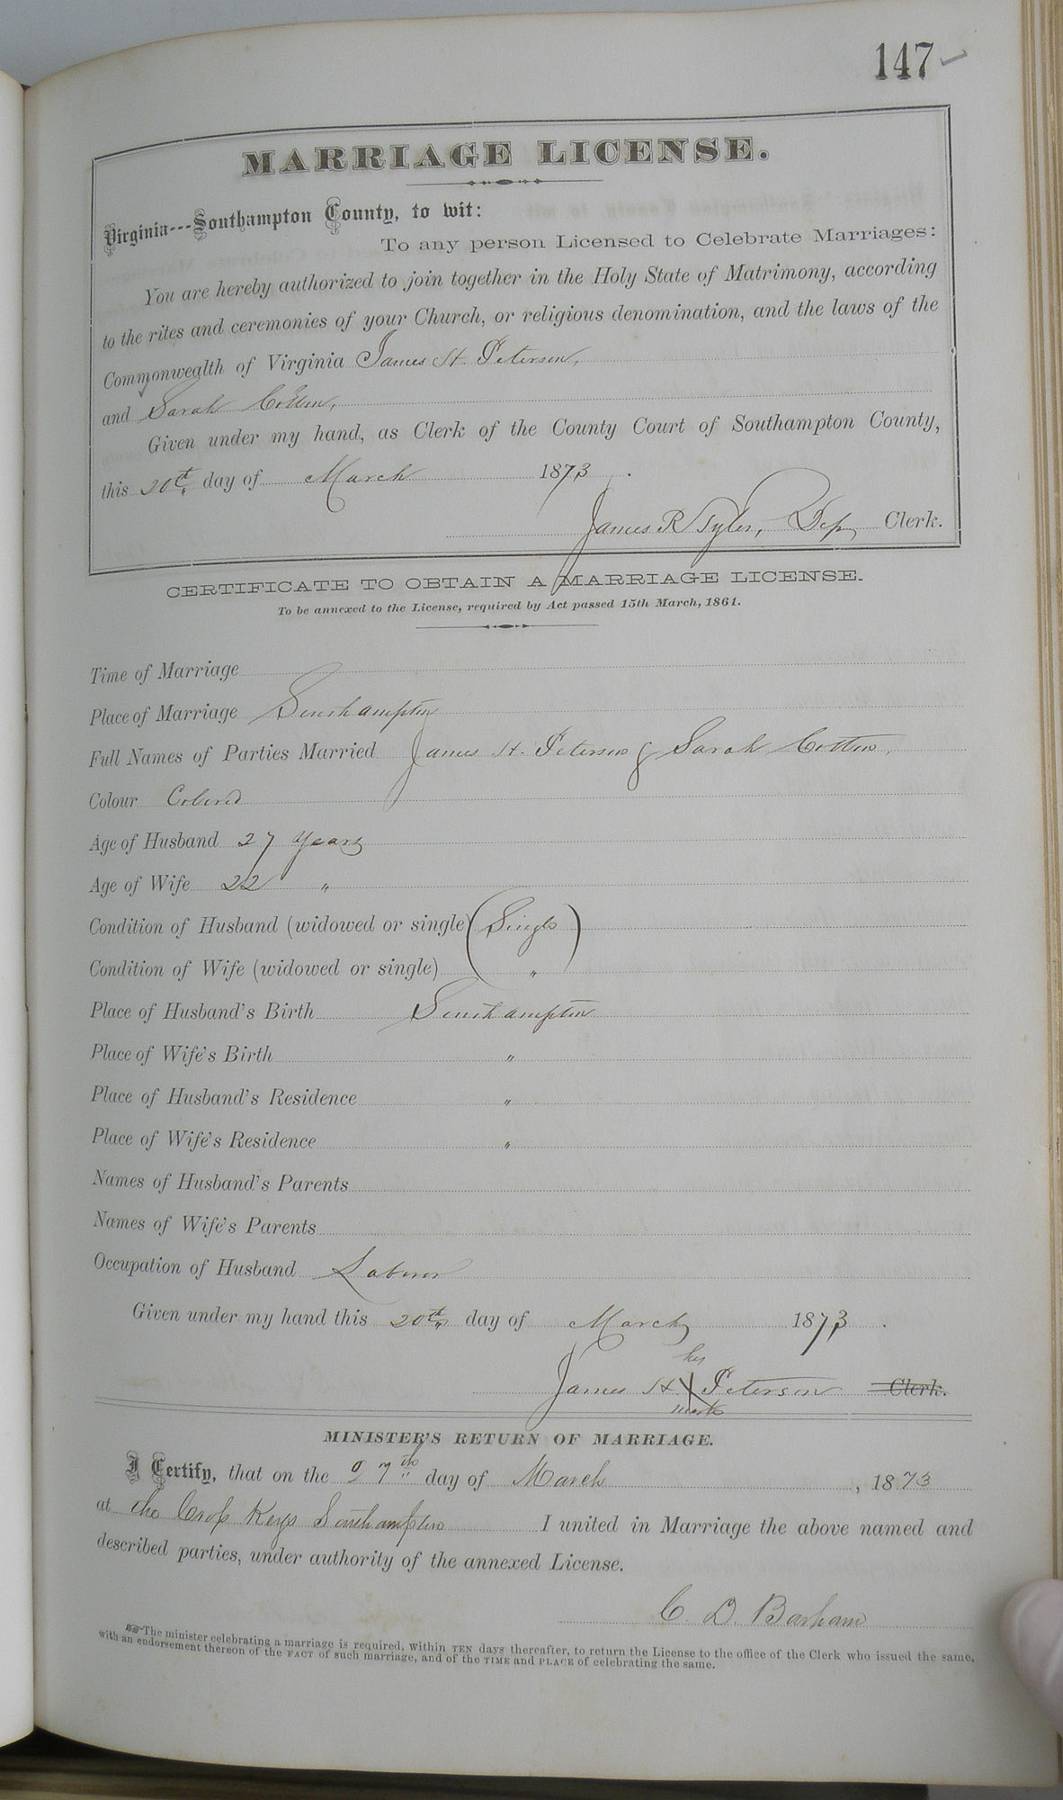 147
MARRIAGE LICENSE.
Virginia---Southampton County, to wit:
To any person Licensed to Celebrate Marriages:
You are hereby authorized to join together in the Holy State of Matrimony, according
to the rites and ceremonies of your Church, or religious denomination, and the laws of the
Commonwealth of Virginia James H. Peterson,
and Sarah Cotten,
Given under my hand, as Clerk of the County Court of Southampton County,
this 20th day of March 1873.
James R Tyler, Dep Clerk.
CERTIFICATE TO OBTAIN A MARRIAGE LICENSE.
To be annexed to the License, required by Act passed 15th March, 1861.
Time of Marriage
Place of Marriage Southampton
Full Names of Parties Married James H. Peterson & Sarah Cotten,
Colour Colored
Age of Husband 27 Years
Age of Wife 22 "
Condition of Husband (widowed or single) (Single)
Condition of Wife (widowed or single) "
Place of Husband's Birth Southampton
Place of Wife's Birth "
Place of Husband's Residence "
Place of Wife's Residence "
Names of Husband's Parents
Names of Wife's Parents
Occupation of Husband Laborer
Given under my hand this 20th day of March 1873.
his
James H. X Peterson Clerk.
mark
MINISTER'S RETURN OF MARRIAGE.
I Certify, that on the 27th day of March, 1873
at the Cross Keys Southampton I united in Marriage the above named and
described parties, under authority of the annexed License.
C. D. Barham
The minister celebrating a marriage is required, within TEN days thereafter, to return the License to the office of the Clerk who issued the same,
with an endorsement thereon of the FACT of such marriage, and of the TIME and PLACE of celebrating the same.